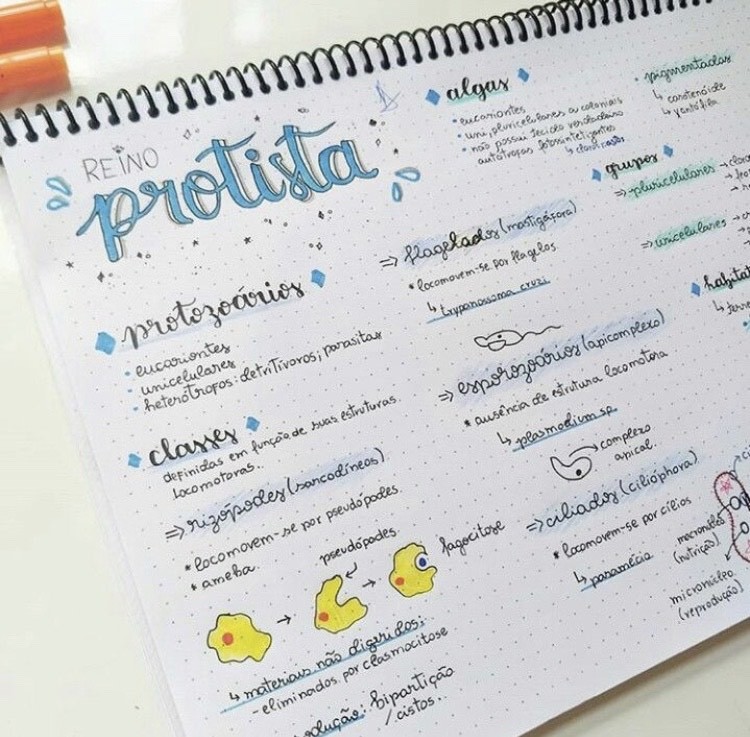 REINO
protista
protozoários
• eucariontes
• unicelulares
• heterótrofos: detritívoros; parasitas
classes
definidas em função de suas estruturas
locomotoras..
⇒ rizópodes (sarcodíneos)
* locomovem-se por pseudópodes.
* ameba.
pseudópodes
fagocitose
↳ materiais não digeridos:
- eliminados por clasmocitose
bipartição
/cistos...
⇒ flagelados (mastigófora)
* locomovem-se por flagelos
↳ trypanossoma cruzi
⇒ esporozoários (apicomplexo)
* ausência de estrutura locomotora
↳ plasmodium sp.
complexo
apical.
⇒ ciliados (cilióphora)
* locomovem-se por cílios
↳ paramécio
macronúcleo
(nutrição)
micronúcleo
(reprodução)
algas
• eucariontes
• uni, pluricelulares ou coloniais
• não possui tecido verdadeiro
autótrofas fotossintetizantes
• pigmentadas
↳ carotenóide
↳ xantófila
grupos
⇒ pluricelulares
⇒ unicelulares